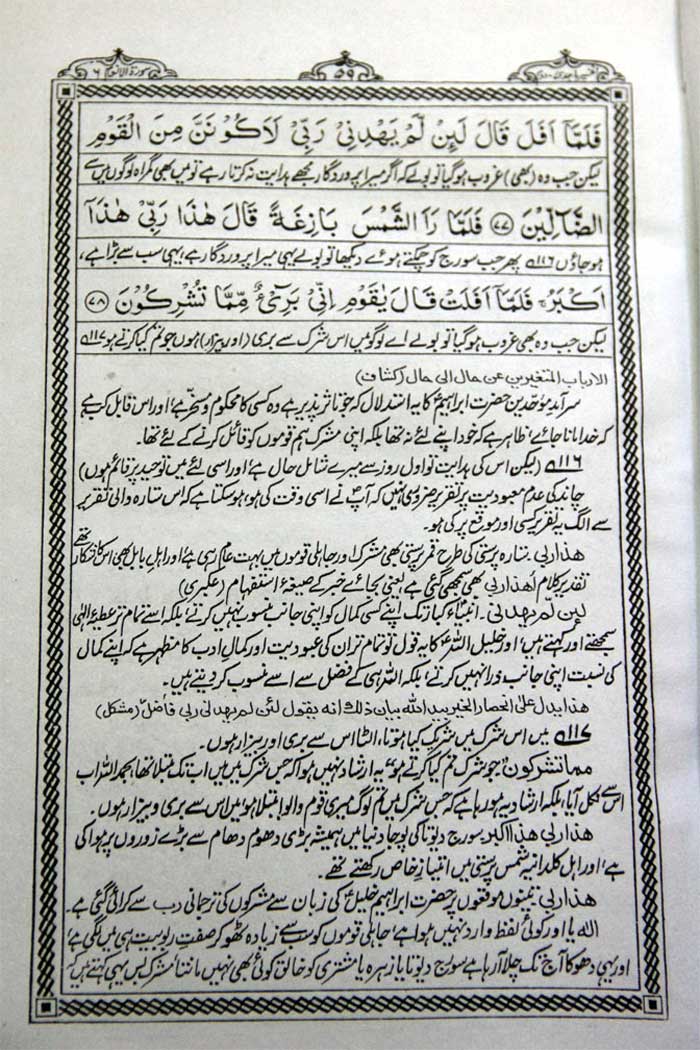 سورة الانعام ٦
٥٩
تفسیر ماجدی
فَلَمَّآ اَفَلَ قَالَ لَىِٕنْ لَّمْ يَهْدِنِيْ رَبِّيْ لَاَكُوْنَنَّ مِنَ الْقَوْمِ
لیکن جب وہ (بھی) غروب ہوگیا تو بولے کہ اگر میرا پروردگار مجھے ہدایت نہ کرتا رہے تو میں بھی گمراہ لوگوں میں سے
الضَّآلِّيْنَ ۝٧٧ فَلَمَّا رَاَ الشَّمْسَ بَازِغَةً قَالَ هٰذَا رَبِّيْ هٰذَآ
ہوجاؤں ١١٦ پھر جب سورج کو چمکتے ہوئے دیکھا تو بولے یہی میرا پروردگار ہے، یہی سب سے بڑا ہے،
اَكْبَرُ ۚ فَلَمَّآ اَفَلَتْ قَالَ يٰقَوْمِ اِنِّيْ بَرِيْٓءٌ مِّمَّا تُشْرِكُوْنَ ۝٧٨
لیکن جب وہ بھی غروب ہوگیا تو بولے اے لوگو میں اس شرک سے بری (اور بیزار) ہوں جو تم کیا کرتے ہو ١١٧
الارباب المتغیرین عن حال الی حال (کشاف)
سرآمد موحدین حضرت ابراہیمؑ کا یہ استدلال کہ جو تاثر پذیر ہے وہ کسی کا محکوم و مسخر ہے، اور اس قابل کب ہے
کہ خدا مانا جائے، ظاہر ہے کہ خود اپنے لئے نہ تھا بلکہ اپنی مشرک ہم قوموں کو قائل کرنے کے لئے تھا۔
١١٦ (لیکن اس کی ہدایت تو اول روز سے میرے شامل حال ہے اور اسی لئے میں توحید پر قائم ہوں)
چاند کی عدم معبودیت پر تقریر ضروری نہیں کہ آپؑ نے اسی وقت کی ہو، ہوسکتا ہے کہ اس ستارہ والی تقریر
سے الگ یہ تقریر کسی اور موقع پر کی ہو۔
هذا ربی۔ ستارہ پرستی کی طرح قمر پرستی بھی مشرک اور جاہلی قوموں میں بہت عام رہی ہے، اور اہل بابل بھی اس کا شکار تھے
تقدیر کلام اهذا ربی بھی سمجھی گئی ہے یعنی بجائے خبر کے صیغۂ استفہام (عکبری)
لئن لم یهدنی۔ انبیاء کبار تک اپنے کسی کمال کو اپنی جانب منسوب نہیں کرتے، بلکہ اسے تمام تر عطیۂ الٰہی
سمجھتے اور کہتے ہیں، اور خلیل اللہؑ کا یہ قول تو تمام تر ان کی عبودیت اور کمال ادب کا مظہر ہے کہ اپنے کمال
کی نسبت اپنی جانب ذرا نہیں کرتے، بلکہ اللہ ہی کے فضل سے اسے منسوب کردیتے ہیں۔
هذا یدل علی انحصار الخیر بید الله بیان ذلك انه یقول لئن لم یهدنی ربی فأضل (مشکل)
١١٧ میں اس شرک میں شرکت کیا ہوتا، الٹا اس سے بری اور بیزار ہوں۔
مما تشرکون "جو شرک تم کیا کرتے ہو" یہ ارشاد نہیں ہوا کہ جس شرک میں میں اب تک مبتلا تھا، بحمداللہ اب
اس سے نکل آیا، بلکہ ارشاد یہ ہورہا ہے کہ جس شرک میں تم لوگ میری قوم والو! مبتلا ہو، میں اس سے بری و بیزار ہوں۔
هذا ربی هذا اکبر سورج دیوتا کی پوجا دنیا میں ہمیشہ بڑی دھوم دھام سے بڑے زوروں پر ہوا کی
ہے، اور اہل کلدانیہ شمس پرستی میں امتیاز خاص رکھتے تھے۔
هذا ربی۔ تینوں موقعوں پر حضرت ابراہیم خلیلؑ کی زبان سے مشرکوں کی ترجمانی رب سے کرائی گئی ہے۔
الہ یا اور کوئی لفظ وارد نہیں ہوا ہے، جاہلی قوموں کو سب سے زیادہ ٹھوکر صفت ربوبیت ہی میں لگی ہے
اور یہی دھوکا آج تک چلا آرہا ہے سورج دیوتا یا زہرہ یا مشتری کو خالق کوئی بھی نہیں مانتا، مشرک بس یہی کہتے ہیں کہ